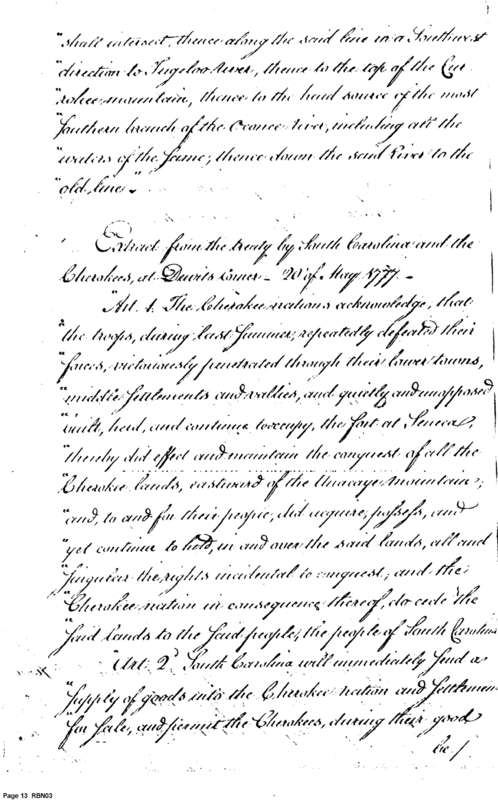 "shall intersect, thence along the said line in a Southwest
"direction to Tugeloo River, thence to the top of the Cur
"rohee mountain, thence to the head source of the most
"Southern branch of the Oconee River, including all the
"waters of the Same; thence down the said River to the
"old line."
Extract from the treaty by South Carolina and the
Cherokees, at Dewits corner - 20th of May 1777 -
"Art. 1. The Cherokee nations acknowledge, that
"the troops, during last Summer, repeatedly defeated their
"forces, victoriously penetrated through their lower towns,
"middle Settlements and vallies, and quietly and unopposed
"built, held, and continue to occupy, the fort at Seneca,
"thereby did effect and maintain the conquest of all the
"Cherokee lands, eastward of the Unacaye mountain;
"and, to and for their people, did acquire, possess, and
"yet continue to hold, in and over the said lands, all and
"Singular the rights incidental to conquest; and the
"Cherokee nation in consequence thereof, do cede the
"Said lands to the Said people, the people of South Carolina
"Art. 2d South Carolina will immediately Send a
"Supply of goods into the Cherokee nation and Settlemen
"for Sale, and permit the Cherokees, during their good
be/
Page 13 RBN03